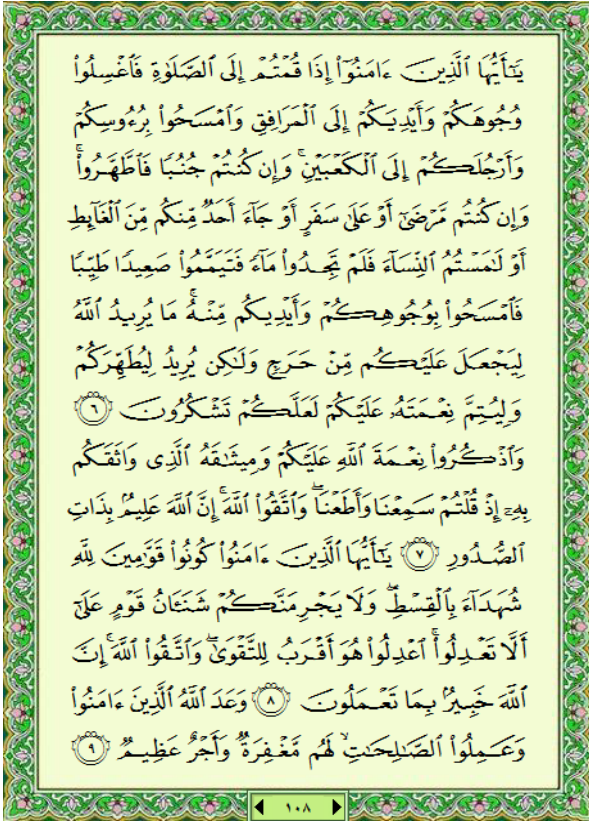 يَـٰٓأَيُّهَا ٱلَّذِينَ ءَامَنُوٓا۟ إِذَا قُمْتُمْ إِلَى ٱلصَّلَوٰةِ فَٱغْسِلُوا۟
وُجُوهَكُمْ وَأَيْدِيَكُمْ إِلَى ٱلْمَرَافِقِ وَٱمْسَحُوا۟ بِرُءُوسِكُمْ
وَأَرْجُلَكُمْ إِلَى ٱلْكَعْبَيْنِ ۚ وَإِن كُنتُمْ جُنُبًا فَٱطَّهَّرُوا۟ ۚ
وَإِن كُنتُم مَّرْضَىٰٓ أَوْ عَلَىٰ سَفَرٍ أَوْ جَآءَ أَحَدٌ مِّنكُم مِّنَ ٱلْغَآئِطِ
أَوْ لَـٰمَسْتُمُ ٱلنِّسَآءَ فَلَمْ تَجِدُوا۟ مَآءً فَتَيَمَّمُوا۟ صَعِيدًا طَيِّبًا
فَٱمْسَحُوا۟ بِوُجُوهِكُمْ وَأَيْدِيكُم مِّنْهُ ۚ مَا يُرِيدُ ٱللَّهُ
لِيَجْعَلَ عَلَيْكُم مِّنْ حَرَجٍ وَلَـٰكِن يُرِيدُ لِيُطَهِّرَكُمْ
وَلِيُتِمَّ نِعْمَتَهُۥ عَلَيْكُمْ لَعَلَّكُمْ تَشْكُرُونَ ٦
وَٱذْكُرُوا۟ نِعْمَةَ ٱللَّهِ عَلَيْكُمْ وَمِيثَـٰقَهُ ٱلَّذِى وَاثَقَكُم
بِهِۦٓ إِذْ قُلْتُمْ سَمِعْنَا وَأَطَعْنَا ۖ وَٱتَّقُوا۟ ٱللَّهَ ۚ إِنَّ ٱللَّهَ عَلِيمٌۢ بِذَاتِ
ٱلصُّدُورِ ٧ يَـٰٓأَيُّهَا ٱلَّذِينَ ءَامَنُوا۟ كُونُوا۟ قَوَّٰمِينَ لِلَّهِ
شُهَدَآءَ بِٱلْقِسْطِ ۖ وَلَا يَجْرِمَنَّكُمْ شَنَـَٔانُ قَوْمٍ عَلَىٰٓ
أَلَّا تَعْدِلُوا۟ ۚ ٱعْدِلُوا۟ هُوَ أَقْرَبُ لِلتَّقْوَىٰ ۖ وَٱتَّقُوا۟ ٱللَّهَ ۚ إِنَّ
ٱللَّهَ خَبِيرٌۢ بِمَا تَعْمَلُونَ ٨ وَعَدَ ٱللَّهُ ٱلَّذِينَ ءَامَنُوا۟
وَعَمِلُوا۟ ٱلصَّـٰلِحَـٰتِ ۙ لَهُم مَّغْفِرَةٌ وَأَجْرٌ عَظِيمٌ ٩
١٠٨